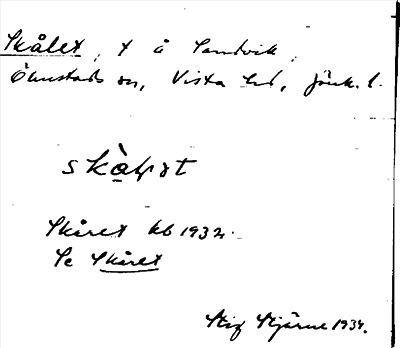 Skålet, t å Sandvik,
Ölmstads sn, Vista hd, Jönk. l.
Skåret kb 1932.
Se Skåret
Stig Stjärne 1934.